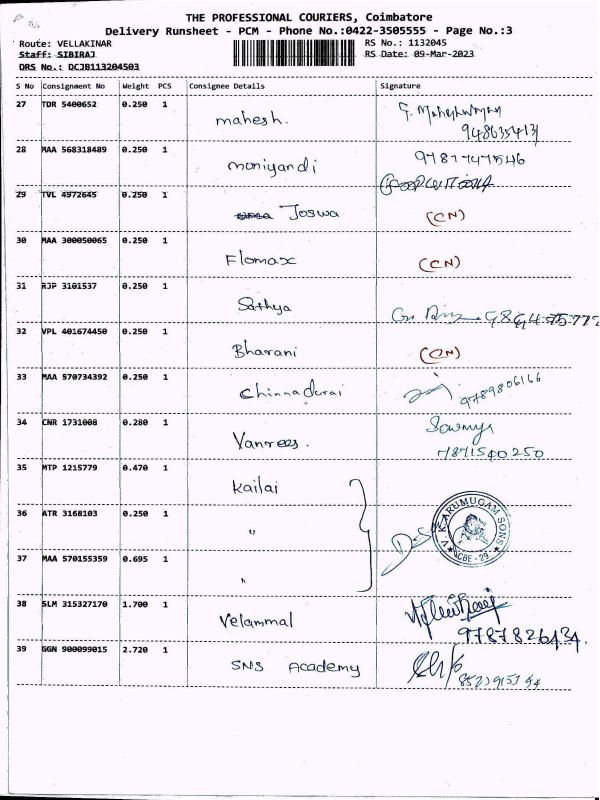 THE PROFESSIONAL COURIERS, Coimbatore
Delivery Runsheet - PCM - Phone No.:0422-3505555 - Page No.:3
Route: VELLAKINAR
RS No.: 1132045
Staff: SIBIRAJ
RS Date: 09-Mar-2023
DRS No.: DCJB113204503
S No Consignment No Weight PCS Consignee Details Signature
27 TDR 5400652 0.250 1 mahesh.
28 MAA 568318489 0.250 1 moniyandi
29 TVL 4972645 0.250 1 Joswa (CN)
30 MAA 300050065 0.250 1 Flomax (CN)
31 RJP 3101537 0.250 1 Sathya
32 VPL 401674450 0.250 1 Bharani (CN)
33 MAA 570734392 0.250 1 Chinnadurai 9789806166
34 CNR 1731008 0.280 1 Vanrees. Sowmya
7871540250
35 MTP 1215779 0.470 1 Kailai
36 ATR 3168103 0.250 1 "
V.K. ARUMUGAM SONS
CBE - 29
37 MAA 570155359 0.695 1 "
38 SLM 315327170 1.700 1 Velammal
9787826434
39 GGN 900099015 2.720 1 SNS Academy